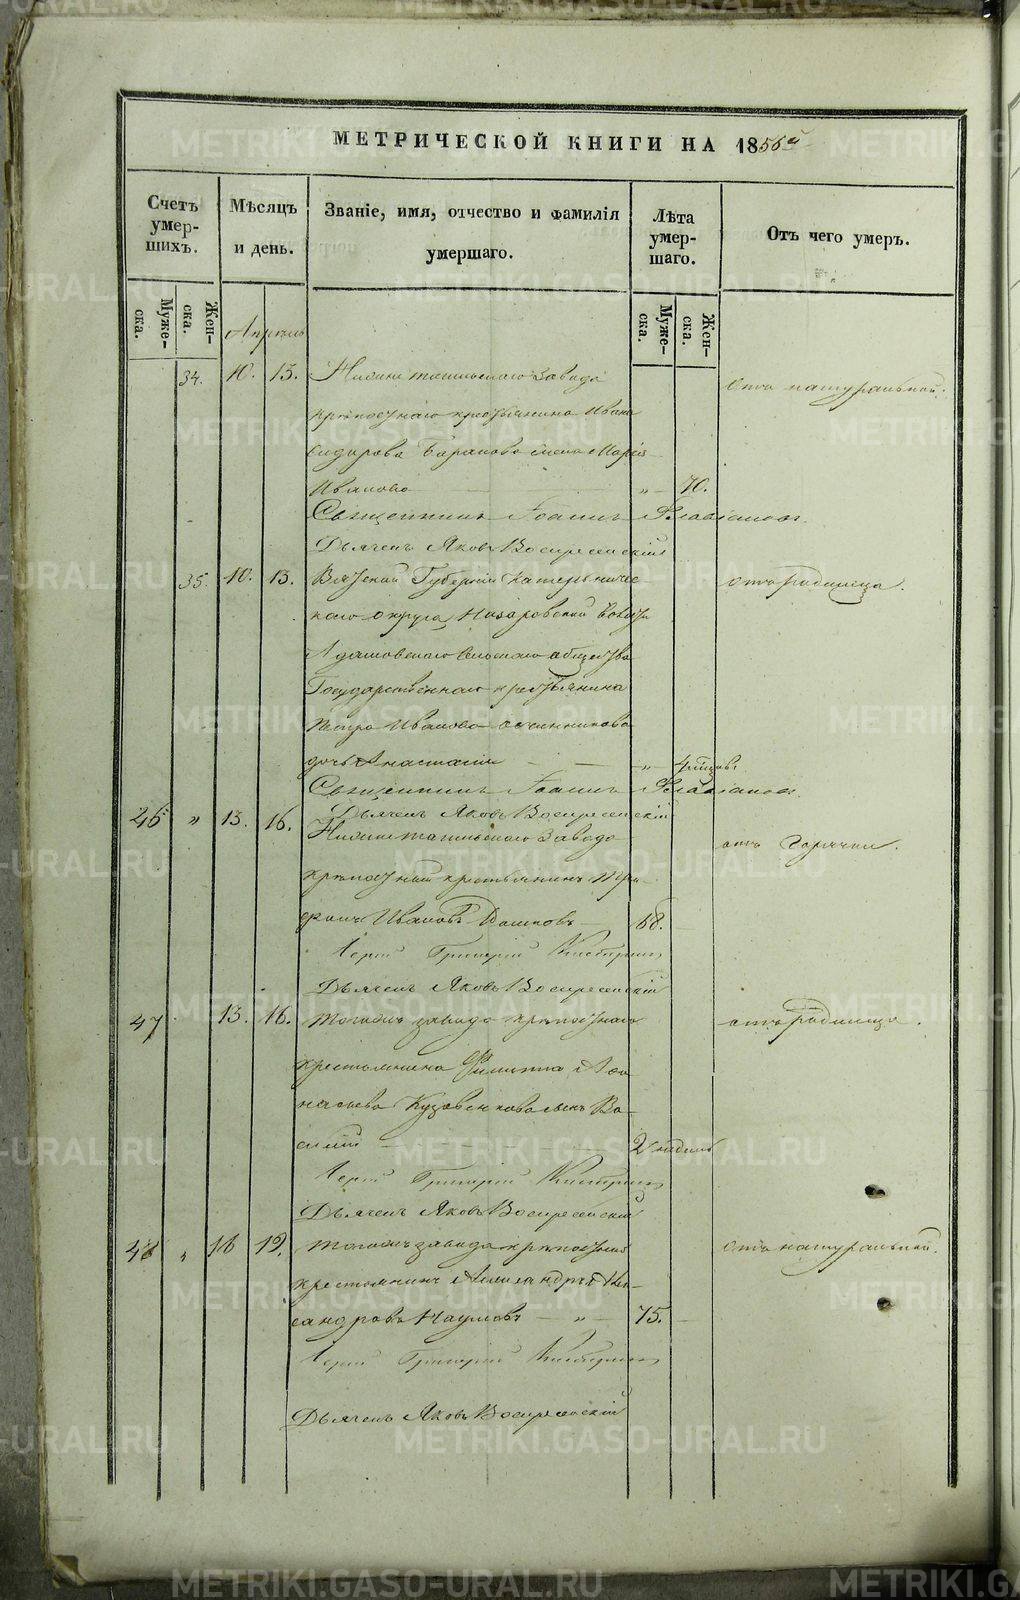 МЕТРИЧЕСКОЙ КНИГИ НА 1856й
Счетъ умер-шихъ.
Мѣсяцъ и день.
Званіе, имя, отчество и фамилія умершаго.
Лѣта умер-шаго.
Отъ чего умеръ.
Муже-ска.
Жен-ска.
Муже-ска.
Жен-ска.
Апрѣль
34. 10. 13. Нижнетагильскаго завода
отъ натуральной.
крѣпостнаго крестьянина Ивана
Сидорова Баранова жена Марія
Иванова " 70.
Священникъ Іоаннъ Флавіановъ
Дьячекъ Яковъ Воскресенскій
35. 10. 13. Вятской Губерніи
отъ родимца.
каго округа волости
сельскаго общества
Государственнаго крестьянина
Петра Иванова Овчинникова
дочь Анастасія "
Священникъ Іоаннъ Флавіановъ
Дьячекъ Яковъ Воскресенскій
46 " 13. 16. Нижнетагильскаго завода
отъ горячки.
крѣпостный крестьянинъ
Ивановъ 68.
Іерей Григорій
Дьячекъ Яковъ Воскресенскій
47 13. 16. Тогожъ завода крѣпостнаго
отъ родимца.
крестьянина Филиппа Афа-
насьева сынъ Ва-
силій 2 недѣль
Іерей Григорій
Дьячекъ Яковъ Воскресенскій
48 " 16 19. Тогожъ завода крѣпостный
отъ натуральной.
крестьянинъ Александръ Алек-
сандровъ Наумовъ " 75.
Іерей Григорій
Дьячекъ Яковъ Воскресенскій
METRIKI.GASO-URAL.RU